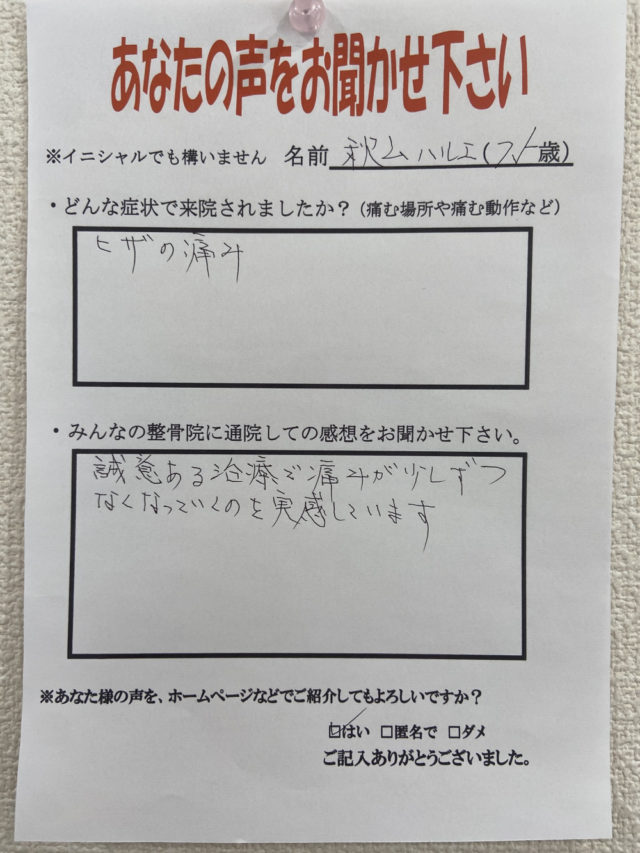 あなたの声をお聞かせ下さい
※イニシャルでも構いません 名前 秋山ハルエ( 歳)
・どんな症状で来院されましたか?(痛む場所や痛む動作など)
ヒザの痛み
・みんなの整骨院に通院しての感想をお聞かせ下さい。
誠意ある治療で痛みが少しずつ
なくなっていくのを実感しています
※あなた様の声を、ホームページなどでご紹介してもよろしいですか?
☑はい □匿名で □ダメ
ご記入ありがとうございました。